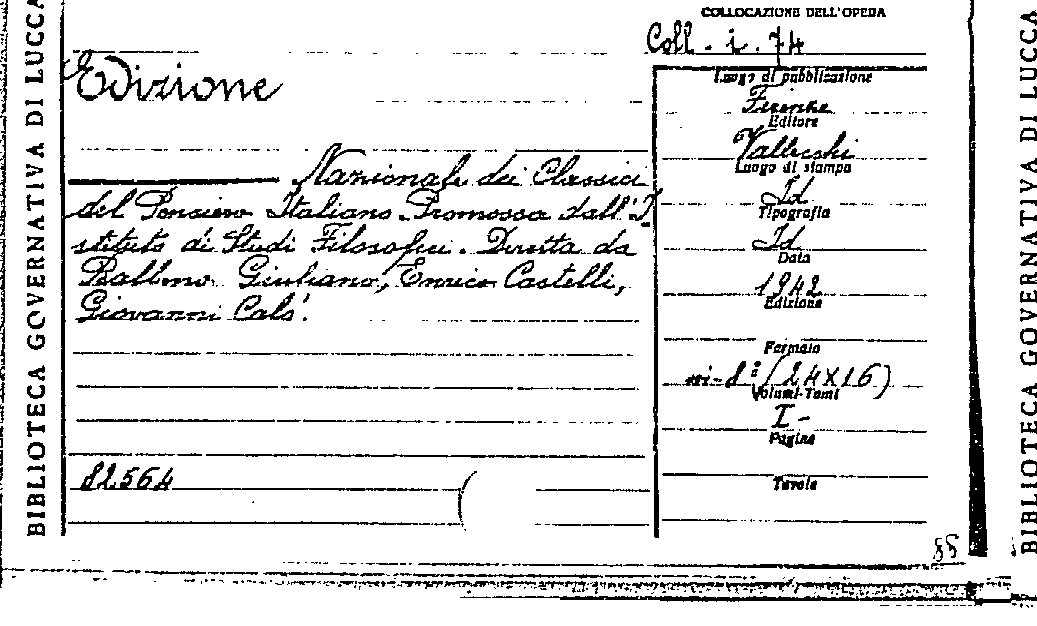 BIBLIOTECA GOVERNATIVA DI LUCCA
COLLOCAZIONE DELL'OPERA
Coll. i. 74
Edizione
Nazionale dei Classici
del Pensiero Italiano. Promossa dall'I-
stituto di Studi Filosofici. Diretta da
Balbino Giuliano, Enrico Castelli,
Giovanni Calò.
82564
Luogo di pubblicazione
Firenze
Editore
Vallecchi
Luogo di stampa
Id
Tipografia
Id
Data
1942
Edizione
Formato
in-8° (24X16)
Volumi-Tomi
I-
Pagine
Tavole
BIBLIOTECA GOVERNATIVA DI LUCCA